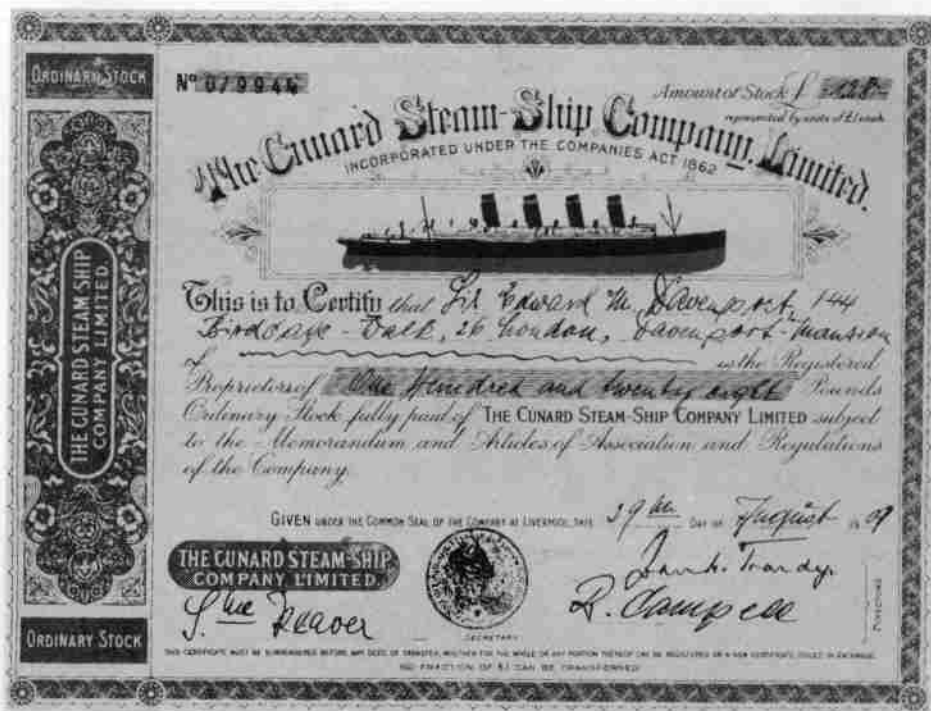 ORDINARY STOCK
Nº 079944
Amount of Stock £ 128
represented by units of £1 each
The Cunard Steam-Ship Company, Limited.
INCORPORATED UNDER THE COMPANIES ACT 1862
This is to Certify that Sir Edward M. Davenport, 144
Birdcage-Walk, 26 London, Davenport-Mansion
of is the Registered
Proprietor of One Hundred and twenty eight Pounds
Ordinary Stock fully paid of THE CUNARD STEAM-SHIP COMPANY LIMITED subject
to the Memorandum and Articles of Association and Regulations
of the Company.
GIVEN UNDER THE COMMON SEAL OF THE COMPANY AT LIVERPOOL, THIS DAY OF August 1909
THE CUNARD STEAM-SHIP
COMPANY LIMITED.
SECRETARY
DIRECTORS
THIS CERTIFICATE MUST BE SURRENDERED BEFORE ANY DEED OF TRANSFER, WHETHER FOR THE WHOLE OR ANY PORTION THEREOF CAN BE REGISTERED OR A NEW CERTIFICATE ISSUED IN EXCHANGE.
NO FRACTION OF £1 CAN BE TRANSFERRED
THE CUNARD STEAM-SHIP
COMPANY LIMITED.
ORDINARY STOCK